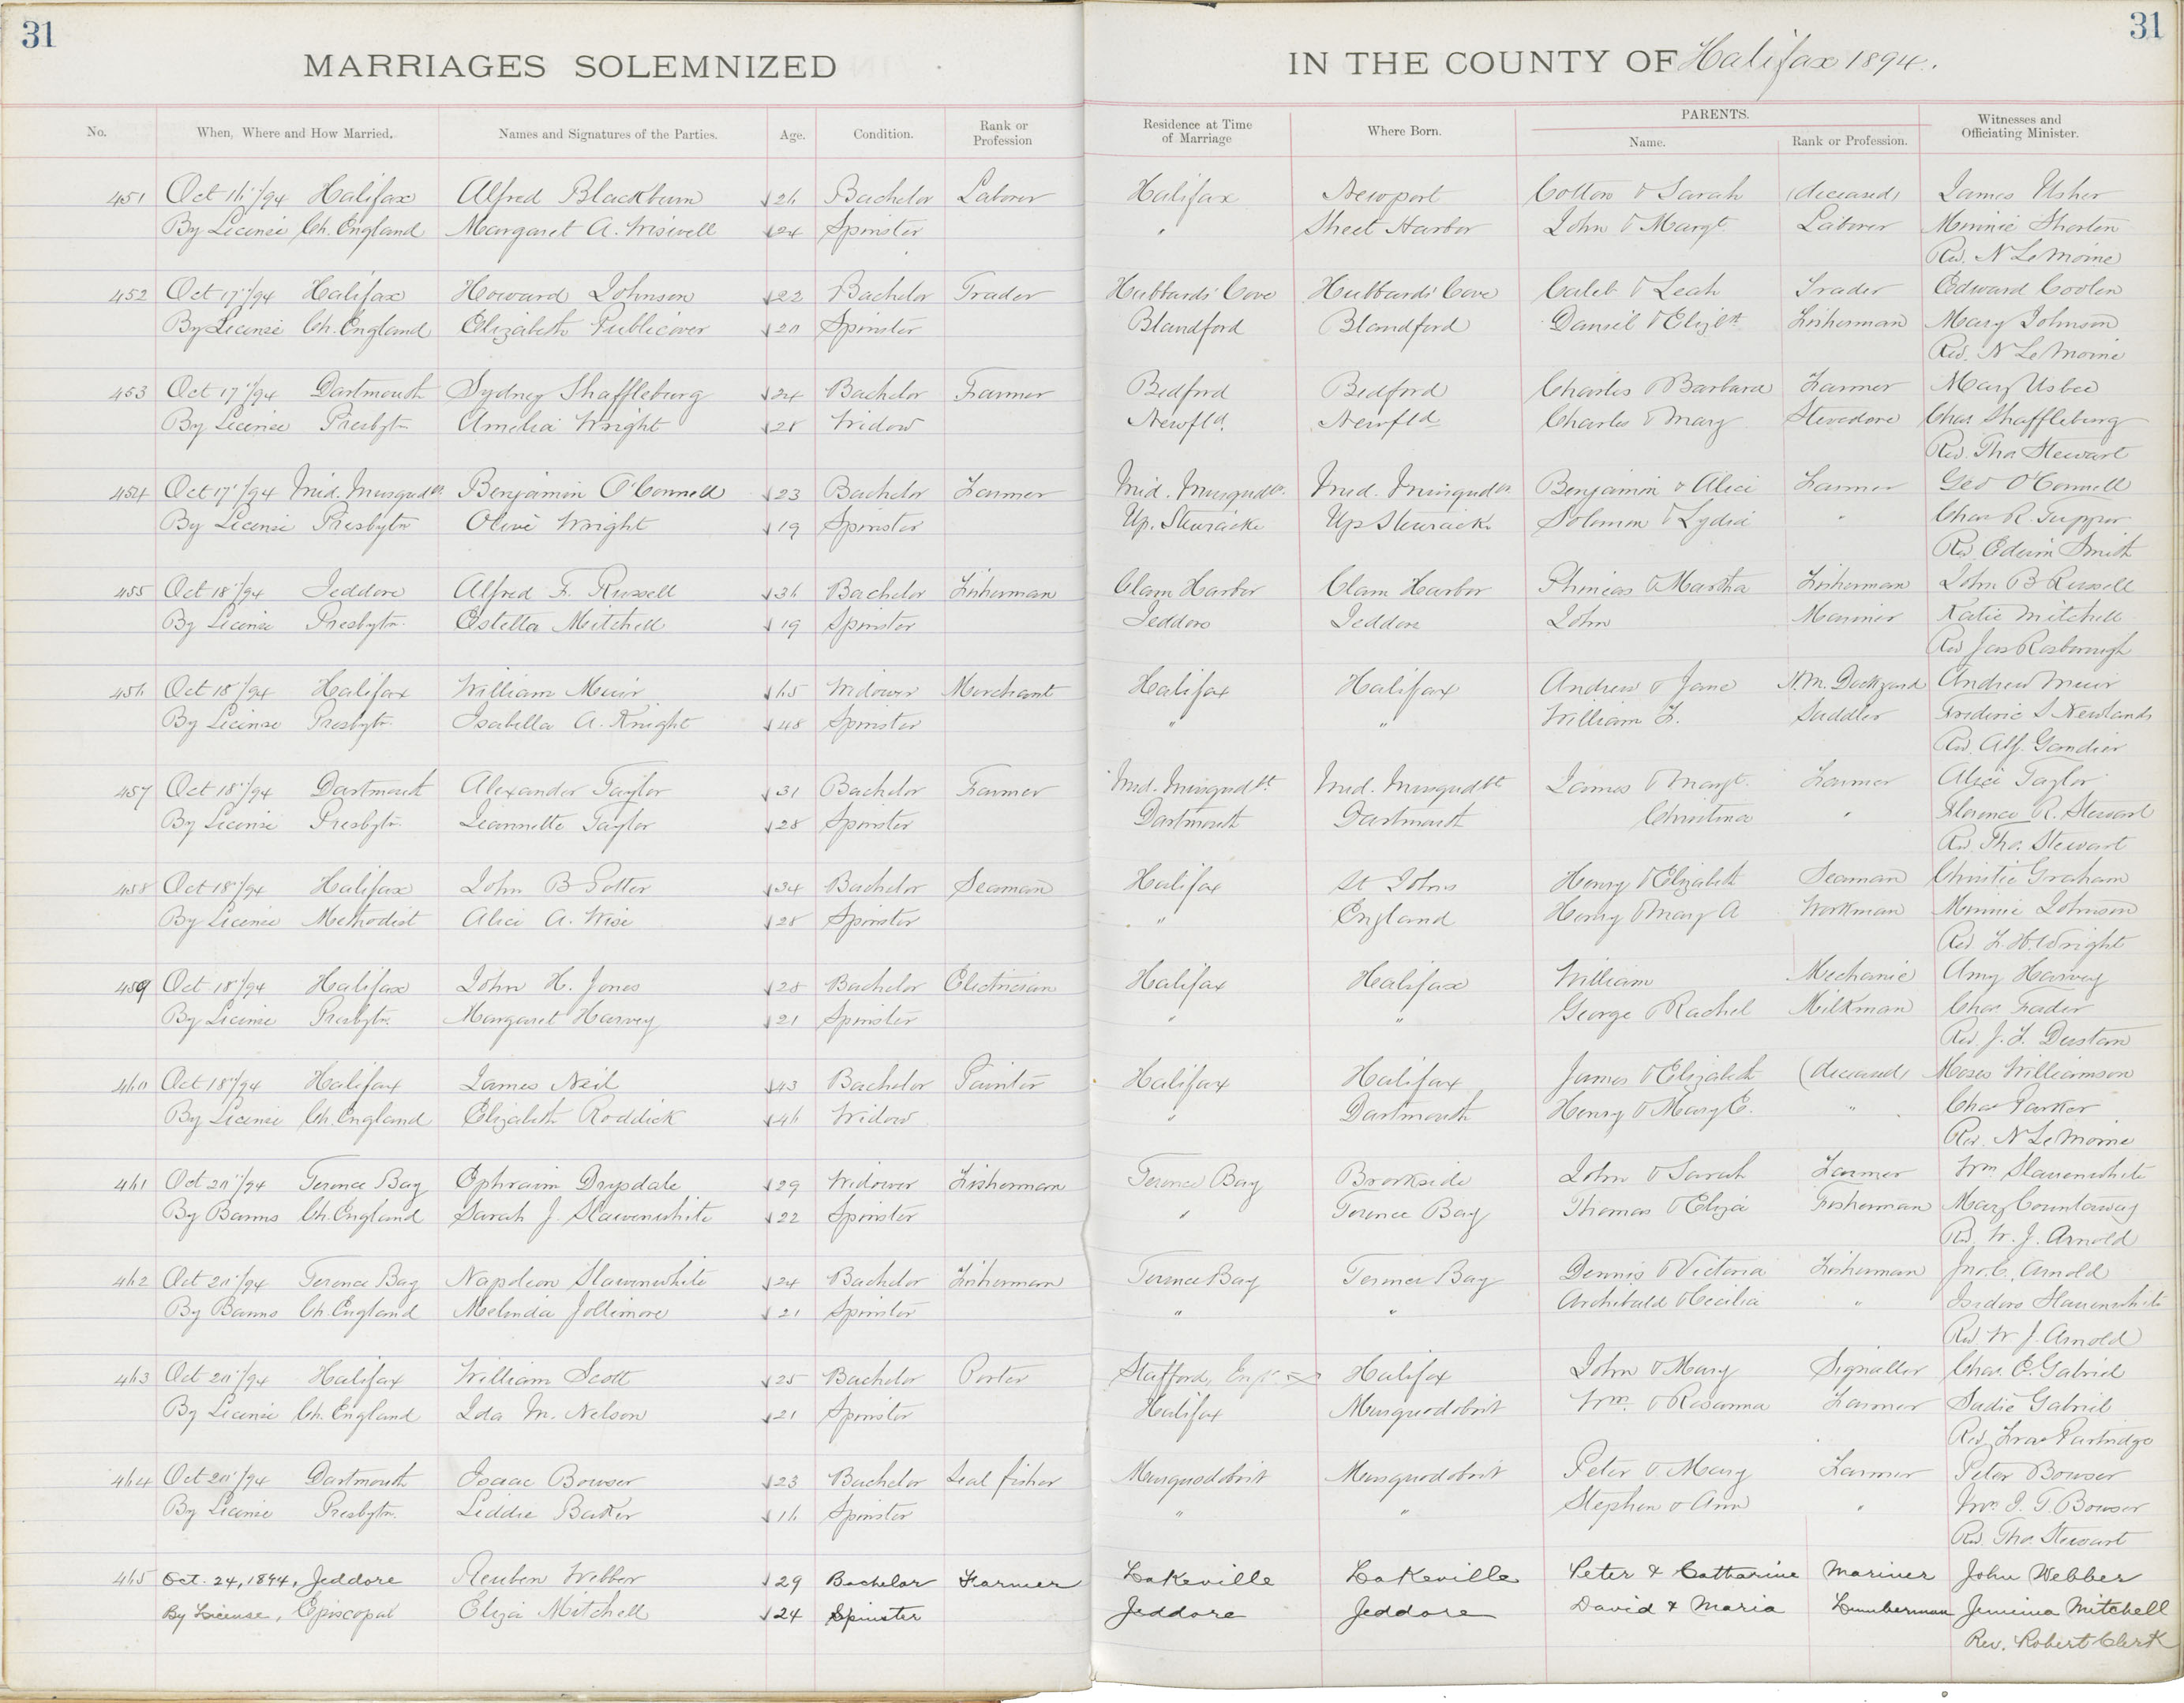 31
31
MARRIAGES SOLEMNIZED IN THE COUNTY OF Halifax 1894.
No. When, Where and How Married. Names and Signatures of the Parties. Age. Condition. Rank or Profession Residence at Time of Marriage Where Born. PARENTS. Name. Rank or Profession. Witnesses and Officiating Minister.
451 Oct 16"/94 Halifax Alfred Blackburn 26 Bachelor Laborer Halifax Newport Cotton & Sarah (deceased) James Usher
By License Ch. England Margaret A. Wiswell 24 Spinster " Sheet Harbor John & Margt Laborer Minnie Shorten
Rev. N LeMoine
452 Oct 17"/94 Halifax Howard Johnson 22 Bachelor Trader Hubbards' Cove Hubbards' Cove Caleb & Leah Trader Edward Coolen
By License Ch. England Elizabeth Publicover 20 Spinster Blandford Blandford Daniel & Elizbth Fisherman Mary Johnson
Rev. N LeMoine
453 Oct 17"/94 Dartmouth Sydney Shaffleburg 24 Bachelor Farmer Bedford Bedford Charles & Barbara Farmer Mary Usbee
By License Presbytn Amelia Wright 28 Widow Newfld. Newfld Charles & Mary Stevedore Chas Shaffleburg
Rev. Thos Stewart
454 Oct 17"/94 Mid. Musqudbt. Benjamin O'Connell 23 Bachelor Farmer Mid. Musqudbt. Mid. Musqudbt. Benjamin & Alice Farmer Geo O'Connell
By License Presbytn Olive Wright 19 Spinster Up. Stewiacke Up Stewiack. Solomon & Lydia " Chas R. Tupper
Rev Edwin Smith
455 Oct 18"/94 Jeddore Alfred F. Russell 36 Bachelor Fisherman Clam Harbor Clam Harbor Phineas & Martha Fisherman John B Russell
By License Presbytn. Estella Mitchell 19 Spinster Jeddore Jeddore John Mariner Katie Mitchell
Rev Jas Rosborough
456 Oct 18"/94 Halifax William Muir 65 Widower Merchant Halifax Halifax Andrew & Jane H.M. Dockyard Andrew Muir
By License Presbytn Isabella A. Knight 48 Spinster " " William F. Saddler Frederic S Newlands
Rev. Alf. Gandier
457 Oct 18"/94 Dartmouth Alexander Taylor 31 Bachelor Farmer Mid. Musqudbt. Mid. Musqudbt James & Margt. Farmer Alice Taylor
By License Presbytn. Jeannette Taylor 28 Spinster Dartmouth Dartmouth Christina " Florence R. Stewart
Rev. Thos. Stewart
458 Oct 18"/94 Halifax John B Potter 34 Bachelor Seaman Halifax St Johns Henry & Elizabeth Seaman Christie Graham
By License Methodist Alice A. Wise 28 Spinster " England Henry & Mary A Workman Minnie Johnson
Rev F. H. Wright
459 Oct 18"/94 Halifax John H. Jones 28 Bachelor Electrician Halifax Halifax William Mechanic Amy Harvey
By License Presbytn. Margaret Harvey 21 Spinster " " George & Rachel Milkman Chas. Fader
Rev. J. F. Dustan
460 Oct 18"/94 Halifax James Neil 43 Bachelor Painter Halifax Halifax James & Elizabeth (deceased) Moses Williamson
By License Ch. England Elizabeth Roddick 46 Widow " Dartmouth Henry & Mary E. " Chas Parker
Rev. N LeMoine
461 Oct 20"/94 Terence Bay Ephraim Drysdale 29 Widower Fisherman Terence Bay Brookside John & Sarah Farmer Wm Slauenwhite
By Banns Ch. England Sarah J. Slauenwhite 22 Spinster " Terence Bay Thomas & Eliza Fisherman Mary Countaway
Rev. W. J. Arnold
462 Oct 20"/94 Terence Bay Napoleon Slauenwhite 24 Bachelor Fisherman Terence Bay Terence Bay Dennis & Victoria Fisherman Jno. C. Arnold
By Banns Ch. England Melinda Jollimore 21 Spinster " " Archibald & Cecilia " Isidore Slauenwhite
Rev W J. Arnold
463 Oct 20"/94 Halifax William Scott 25 Bachelor Porter Stafford, Engd. Halifax John & Mary Signaller Chas. E. Gabriel
By License Ch. England Ida M. Nelson 21 Spinster Halifax Musquodoboit Wm. & Rosanna Farmer Sadie Gabriel
Rev Fras Partridge
464 Oct 20"/94 Dartmouth Isaac Bowser 23 Bachelor Seal fisher Musquodoboit Musquodoboit Peter & Mary Farmer Peter Bowser
By License Presbytn. Liddie Baker 16 Spinster " " Stephen & Ann " Mrs. I. T. Bowser
Rev. Thos. Stewart
465 Oct. 24, 1894, Jeddore Reuben Webber 29 Bachelor Farmer Lakeville Lakeville Peter & Catharine Mariner John Webber
By License, Episcopal Eliza Mitchell 24 Spinster Jeddore Jeddore David & Maria Lumberman Jemima Mitchell
Rev. Robert Clerk